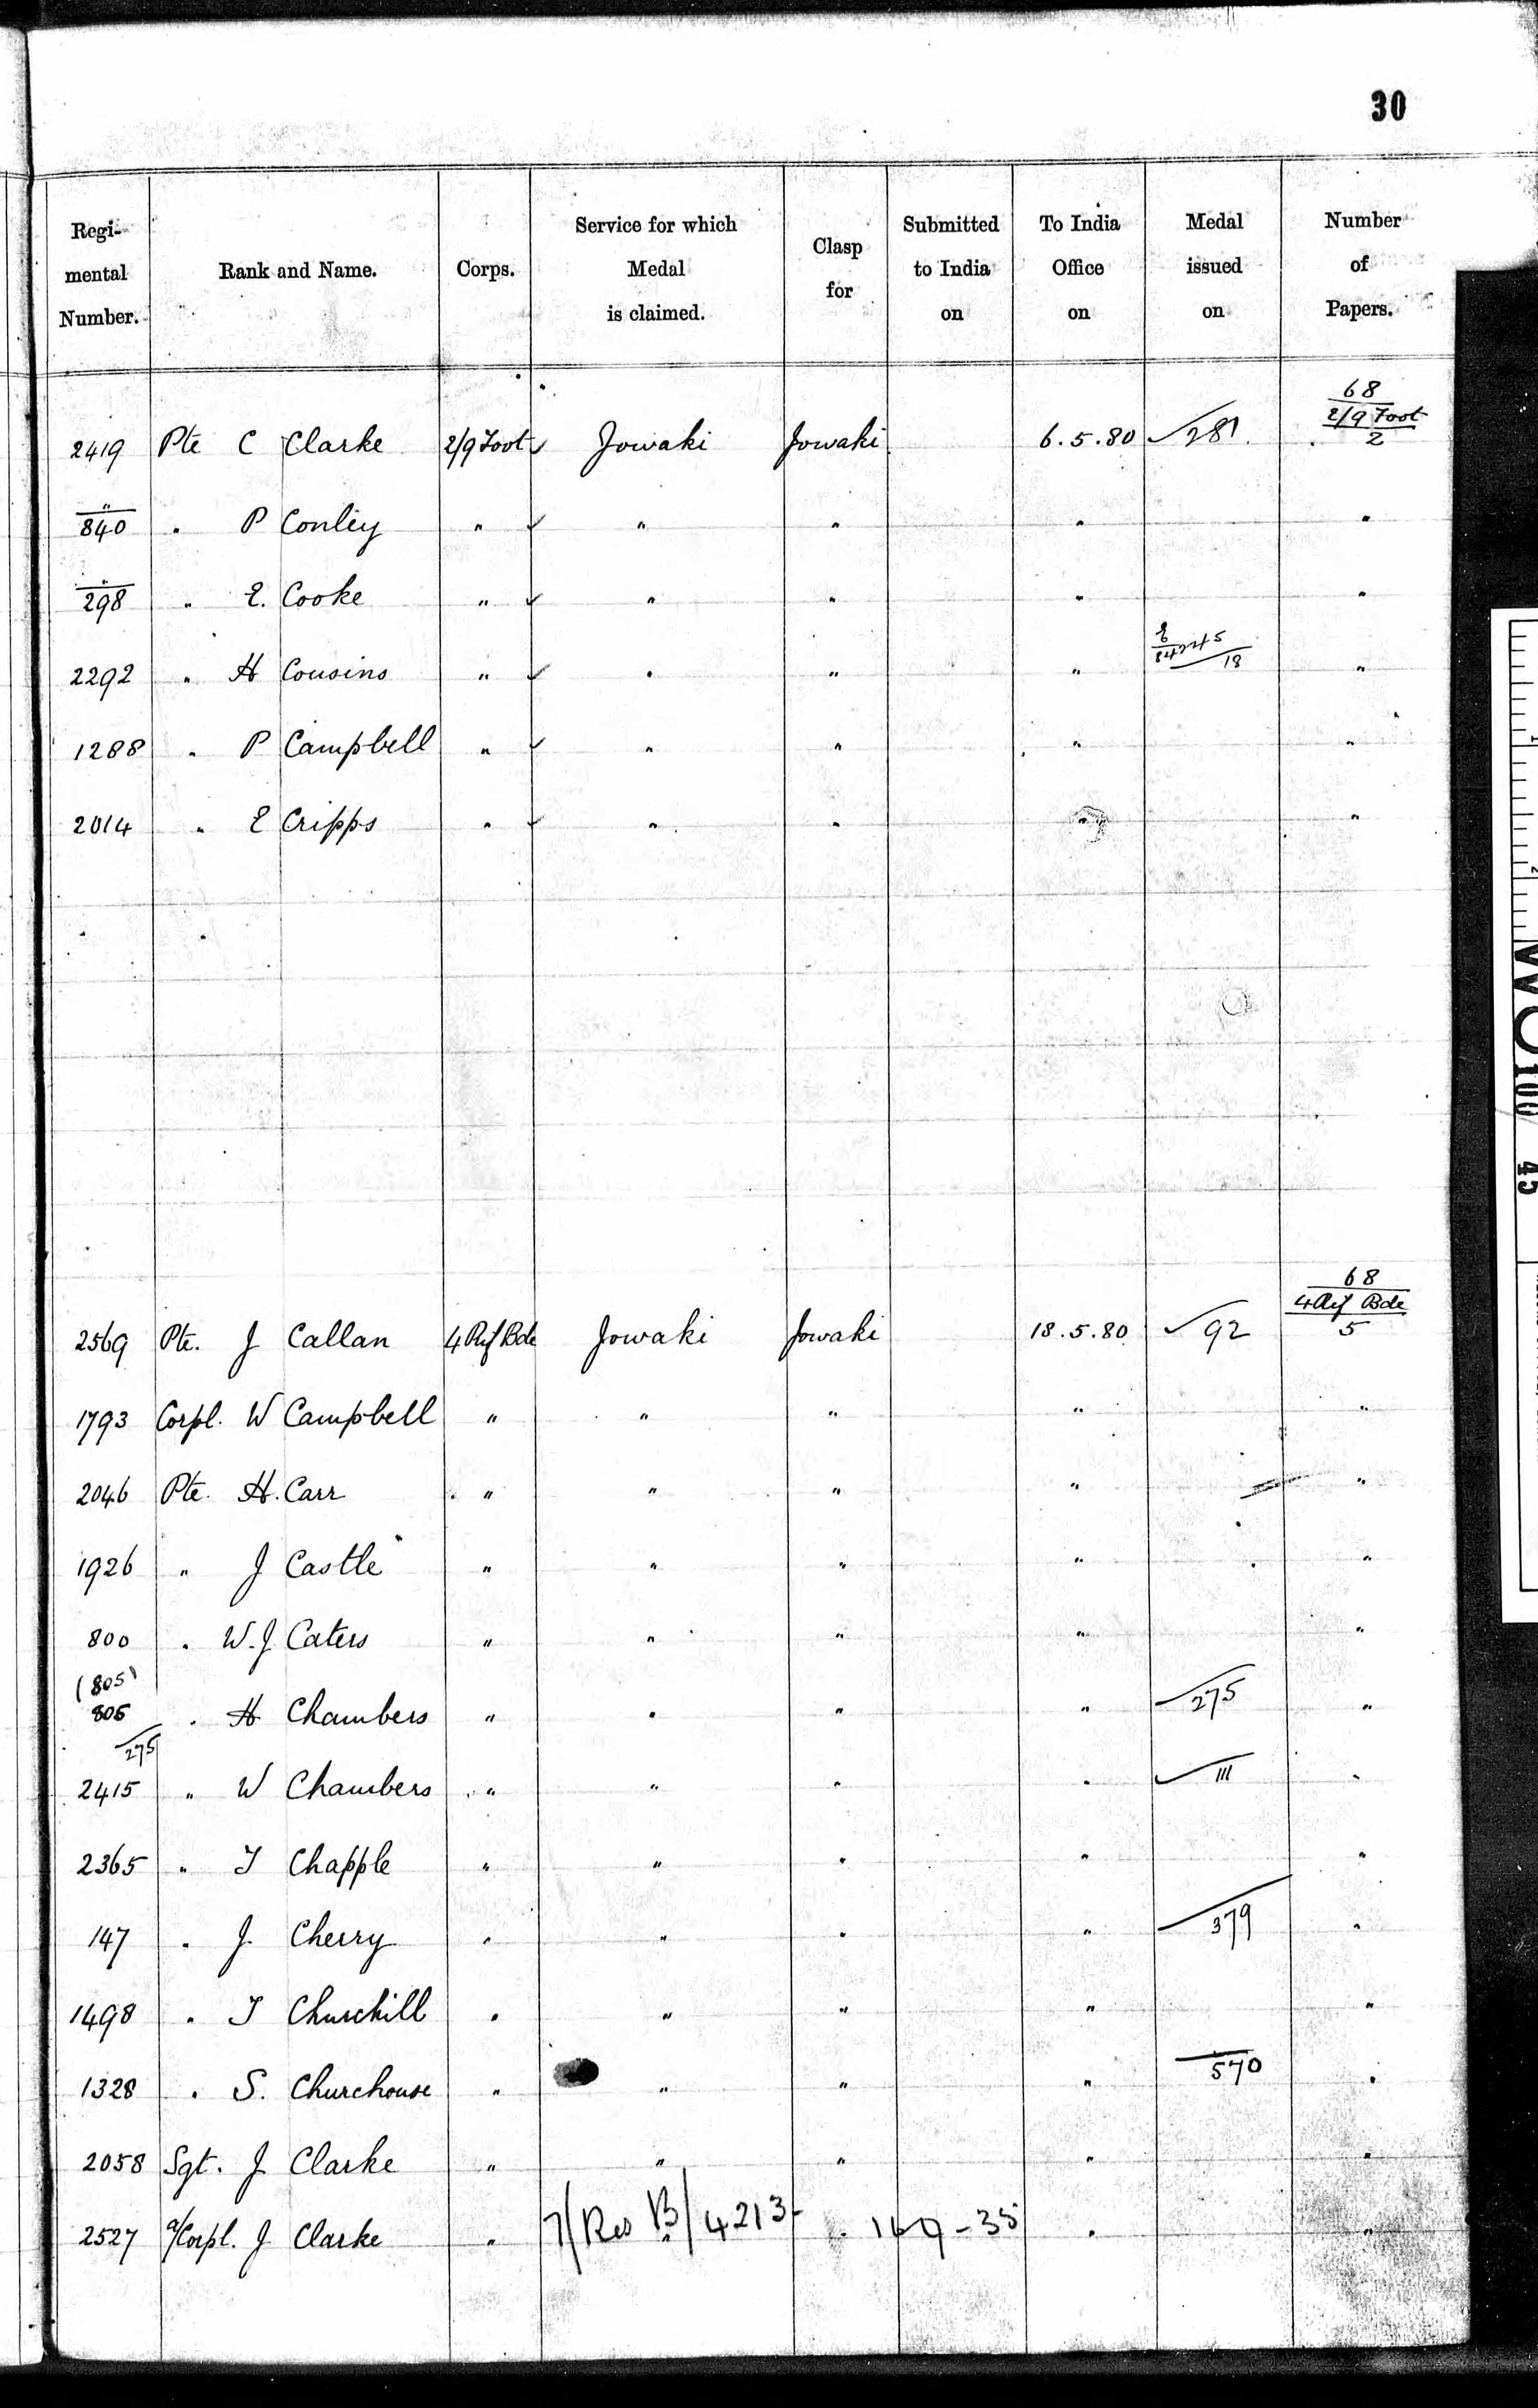 30
Regi-mental Number. Rank and Name. Corps. Service for which Medal is claimed. Clasp for Submitted to India on To India Office on Medal issued on Number of Papers.
68
2419 Pte C Clarke 2/9 Foot Jowaki Jowaki 6.5.80 281 2/9 Foot
2
"
840 " P Conley " " " " "
"
298 " E. Cooke " " " " "
2292 " H Cousins " " " " 18 "
1288 " P Campbell " " " " "
2014 " E Cripps " " " " "
68
4 Rif Bde
2569 Pte. J Callan 4 Rif Bde Jowaki Jowaki 18.5.80 92 5
1793 Corpl. W Campbell " " " " "
2046 Pte. H. Carr " " " " "
1926 " J Castle " " " " "
800 " W. J Caters " " " " "
(805)
805 " H Chambers " " " " 275 "
275
2415 " W Chambers " " " " 111 "
2365 " T Chapple " " " " "
147 " J. Cherry " " " " 379 "
1498 " T Churchill " " " " "
1328 " S. Churchouse " " " " 570 "
2058 Sgt. J Clarke " " " " "
2527 a/Corpl. J Clarke " 7/Res B/4213 " " "
WO 100 45